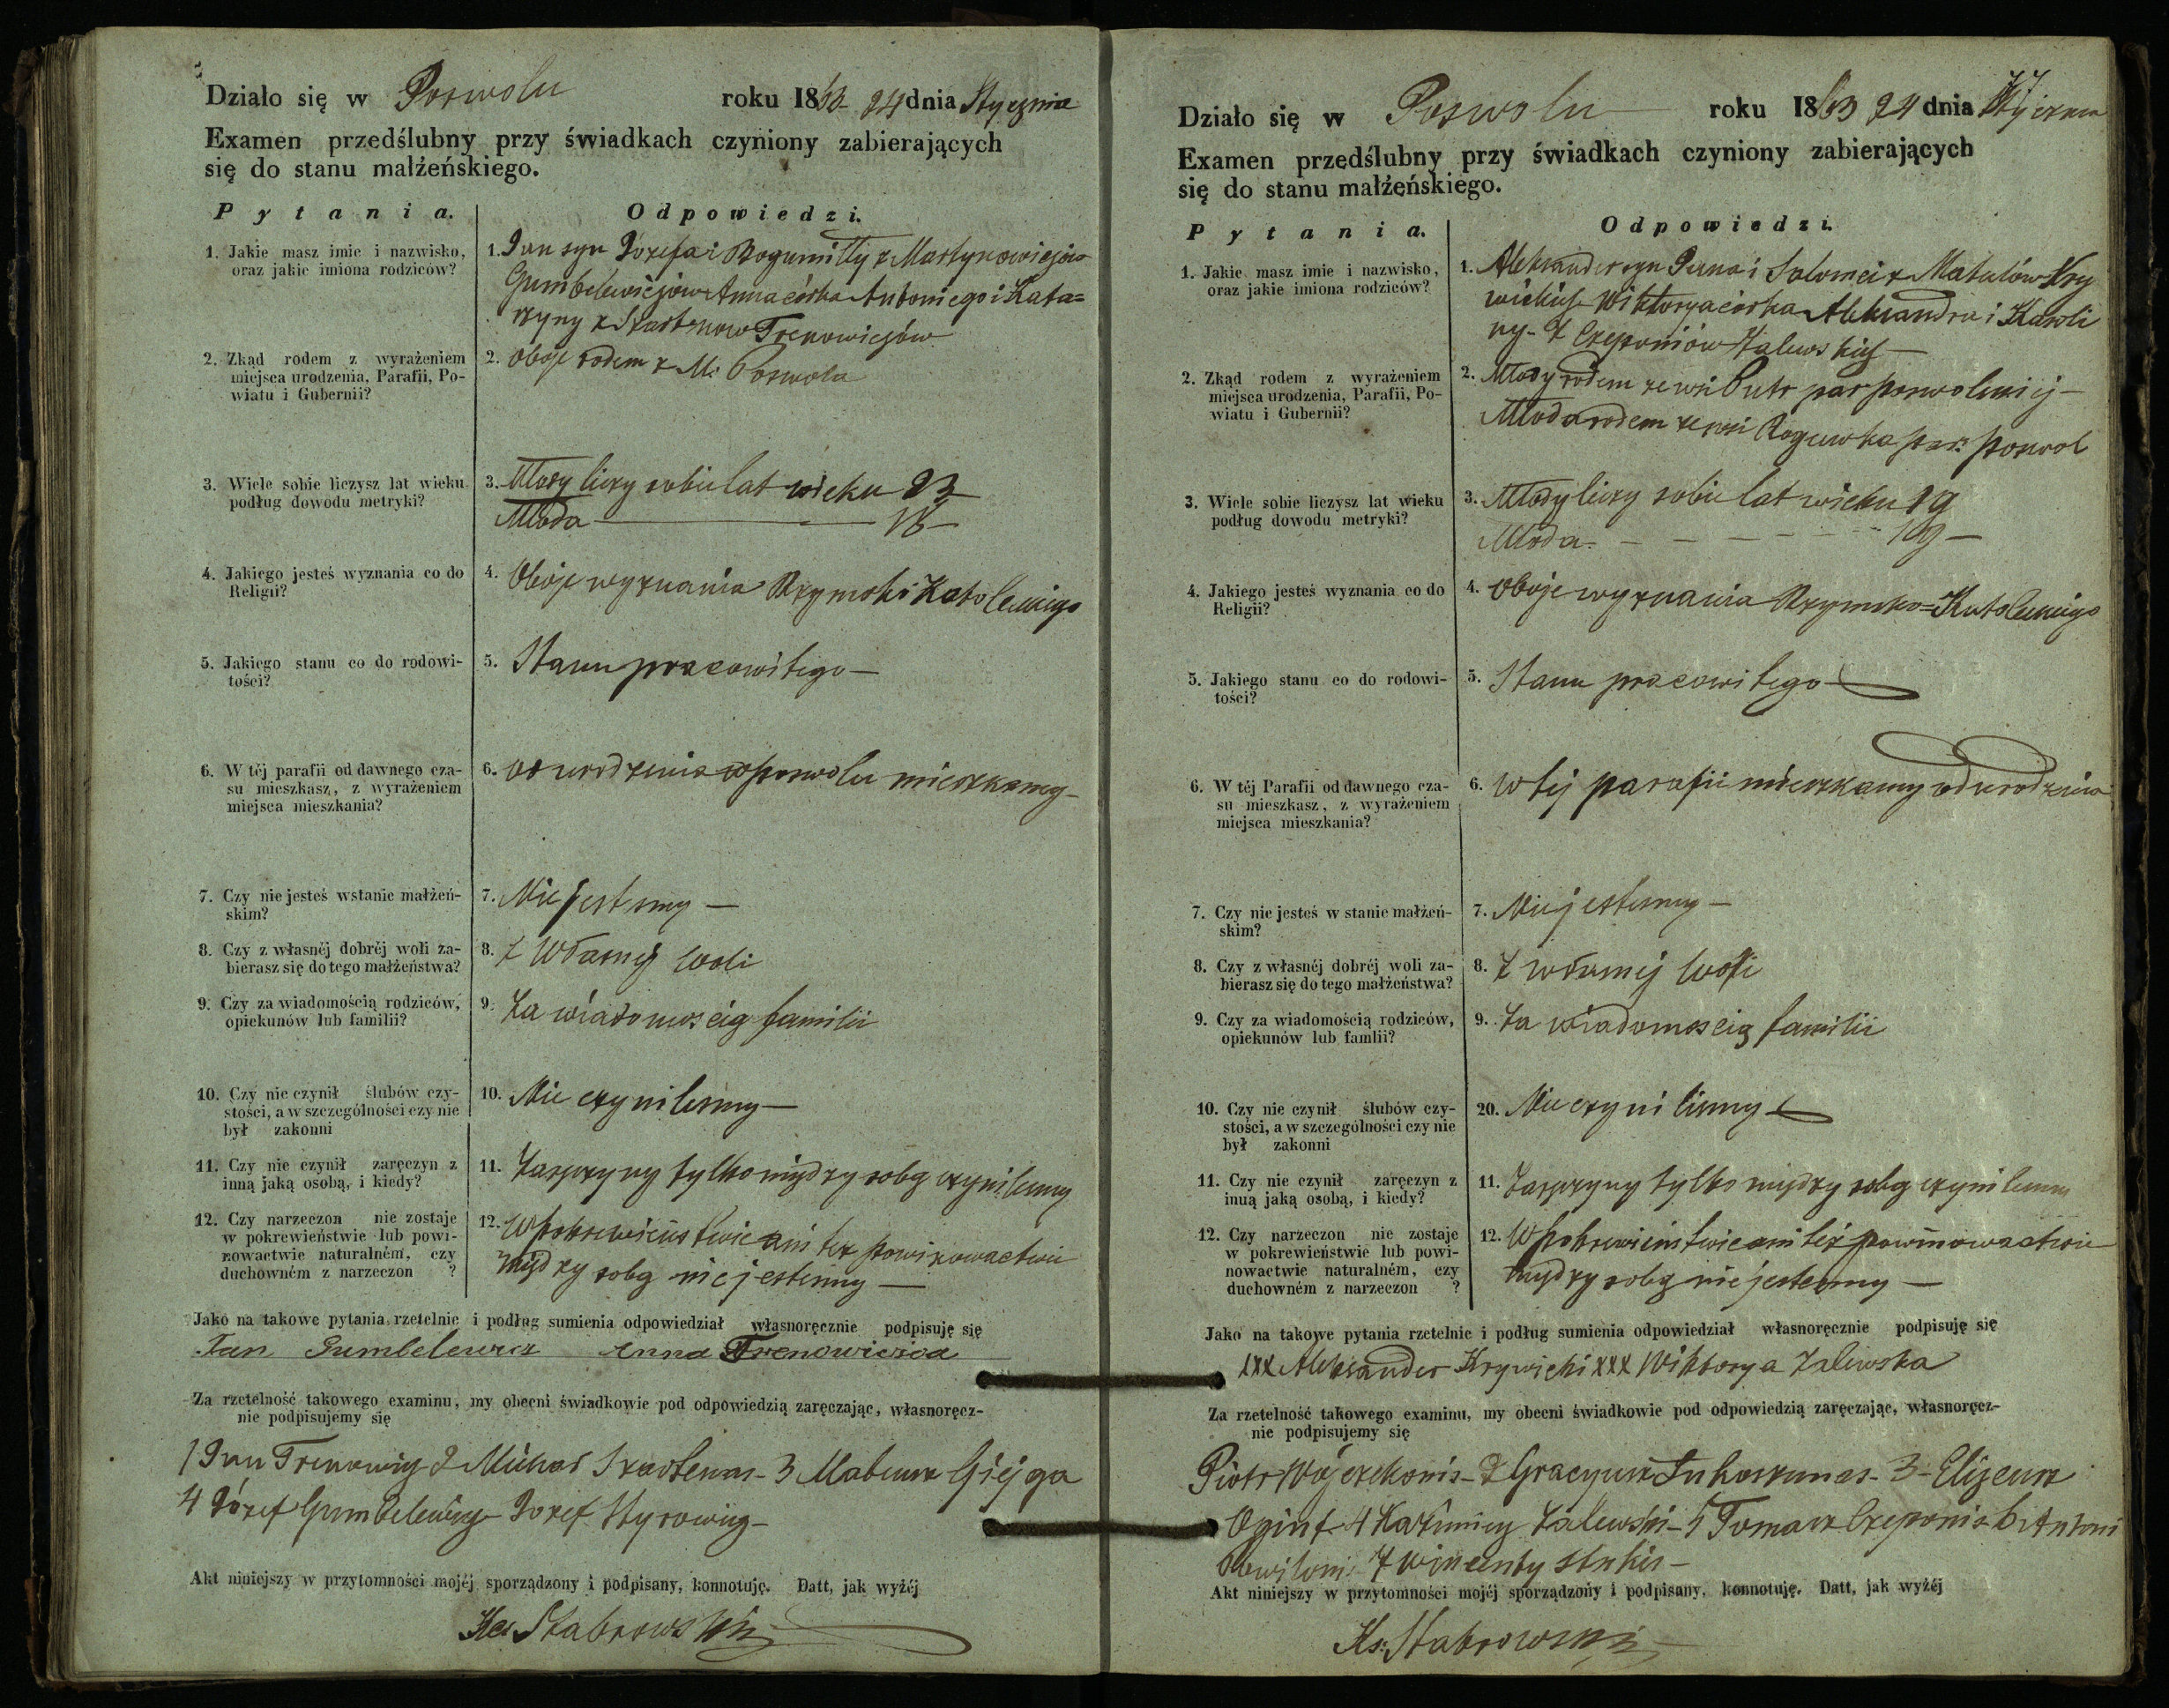 Działo się w Poswolu roku 1863 24 dnia Stycznia
Examen przedślubny przy świadkach czyniony zabierających
się do stanu małżeńskiego.
Pytania. Odpowiedzi.
1. Jakie masz imie i nazwisko,
oraz jakie imiona rodziców?
1. Jan syn Józefa i Bogumiłły z Martynowiczów
Gumbelewiczów Anna córka Antoniego i Kata=
rzyny z Trenowiczów
2. Zkąd rodem z wyrażeniem
miejsca urodzenia, Parafii, Po-
wiatu i Gubernii?
2. Oboje rodem z M. Poswola
3. Wiele sobie liczysz lat wieku
podług dowodu metryki?
3. Młody liczy sobie lat wieku 23
Młoda 18
4. Jakiego jesteś wyznania co do
Religii?
4. Oboje wyznania Rzymski Katolickiego
5. Jakiego stanu co do rodowi-
tości?
5. Stanu pracowitego
6. W téj parafii od dawnego cza-
su mieszkasz, z wyrażeniem
miejsca mieszkania?
6. Od urodzenia w poswolu mieszkamy
7. Czy nie jesteś wstanie małżeń-
skim?
7. Nie jestesmy
8. Czy z własnéj dobréj woli za-
bierasz się do tego małżeństwa?
8. Z własnej woli
9. Czy za wiadomością rodziców,
opiekunów lub familii?
9. Za wiadomoscią familii
10. Czy nie czynił ślubów czy-
stości, a w szczególności czy nie
był zakonni
10. Nie czynilismy
11. Czy nie czynił zaręczyn z
inną jaką osobą, i kiedy?
11. Zaręczyny tylko między sobą czynilismy
12. Czy narzeczon nie zostaje
w pokrewieństwie lub powi-
nowactwie naturalném, czy
duchowném z narzeczon ?
12. W pokrewieństwie ani tez powinowactwie
między sobą nie jestesmy
Jako na takowe pytania, rzetelnie i podług sumienia odpowiedział własnoręcznie podpisuję się
Jan Gumbelewicz Anna Trenowiczoa
Za rzetelność takowego examinu, my obecni świadkowie pod odpowiedzią zaręczając, własnoręcz-
nie podpisujemy się
1 Jan Trenowicz 2 Michał 3 Mateusz Giejga
4 Józef Gumbelewicz Jozef Styrowicz
Akt niniejszy w przytomności mojéj sporządzony i podpisany, konnotuję. Datt, jak wyżéj
Ks. Stabrowski
77
Działo się w Poswolu roku 1863 24 dnia Stycznia
Examen przedślubny przy świadkach czyniony zabierających
się do stanu małżeńskiego.
Pytania. Odpowiedzi.
1. Jakie masz imie i nazwisko,
oraz jakie imiona rodziców?
1. Aleksander syn Jana i Salomei z Matulów Kry
wickich Wiktorya córka Aleksandra i Karoli
ny z Czeponiów Zalewskich
2. Zkąd rodem z wyrażeniem
miejsca urodzenia, Parafii, Po-
wiatu i Gubernii?
2. Młody rodem ze wsi par poswolskiej
Młoda rodem ze wsi Roguwka par: poswol
3. Wiele sobie liczysz lat wieku
podług dowodu metryki?
3. Młody liczy sobie lat wieku 29
Młoda 19
4. Jakiego jesteś wyznania co do
Religii?
4. Oboje wyznania Rzymsko=Katolickiego
5. Jakiego stanu co do rodowi-
tości?
5. Stanu pracowitego
6. W téj Parafii od dawnego cza-
su mieszkasz, z wyrażeniem
miejsca mieszkania?
6. W tej parafii mieszkamy od urodzenia
7. Czy nie jesteś w stanie małżeń-
skim?
7. Nie jestesmy
8. Czy z własnéj dobréj woli za-
bierasz się do tego małżeństwa?
8. Z własnej woli
9. Czy za wiadomością rodziców,
opiekunów lub famlii?
9. Za wiadomoscią familii
10. Czy nie czynił ślubów czy-
stości, a w szczególności czy nie
był zakonni
20. Nie czynilismy
11. Czy nie czynił zaręczyn z
inuą jaką osobą, i kiedy?
11. Zaręczyny tylko między sobą czynilismy
12. Czy narzeczon nie zostaje
w pokrewieństwie lub powi-
nowactwie naturalném, czy
duchowném z narzeczon ?
12. W pokrewieństwie ani też powinowactwie
między sobą nie jestesmy
Jako na takowe pytania rzetelnie i podług sumienia odpowiedział własnoręcznie podpisuję się
xxx Aleksander Krywicki xxx Wiktorya Zalewska
Za rzetelność takowego examinu, my obecni świadkowie pod odpowiedzią zaręczając, własnoręcz-
nie podpisujemy się
Piotr Wojczekonis 2 Gracyusz Lukoszunas 3 Elizeusz
Ogint 4 Kazimierz Zalewski 5 Tomasz Czeponis 6 Antoni
7 Wincenty
Akt niniejszy w przytomności mojéj sporządzony i podpisany, konnotuję. Datt, jak wyżéj
Ks. Stabrowski